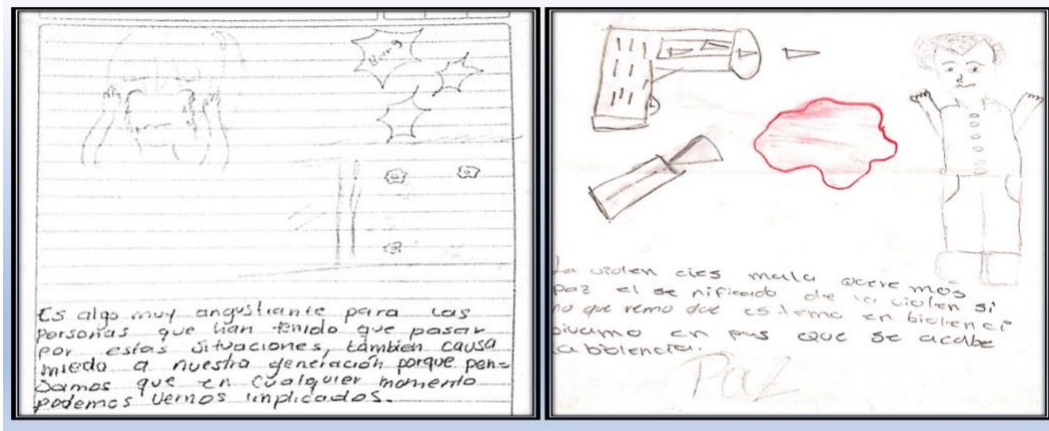 Bang
Es algo muy angustiante para las
personas que han tenido que pasar
por estas situaciones, también causa
miedo a nuestra generación porque pen-
samos que en cualquier momento
podemos vernos implicados.
La violen cies mala quere mos
paz el se nificado de la violen si
no que remo que estemo en biolenci
bivamo en pas que se acabe
la biolencia.
Paz